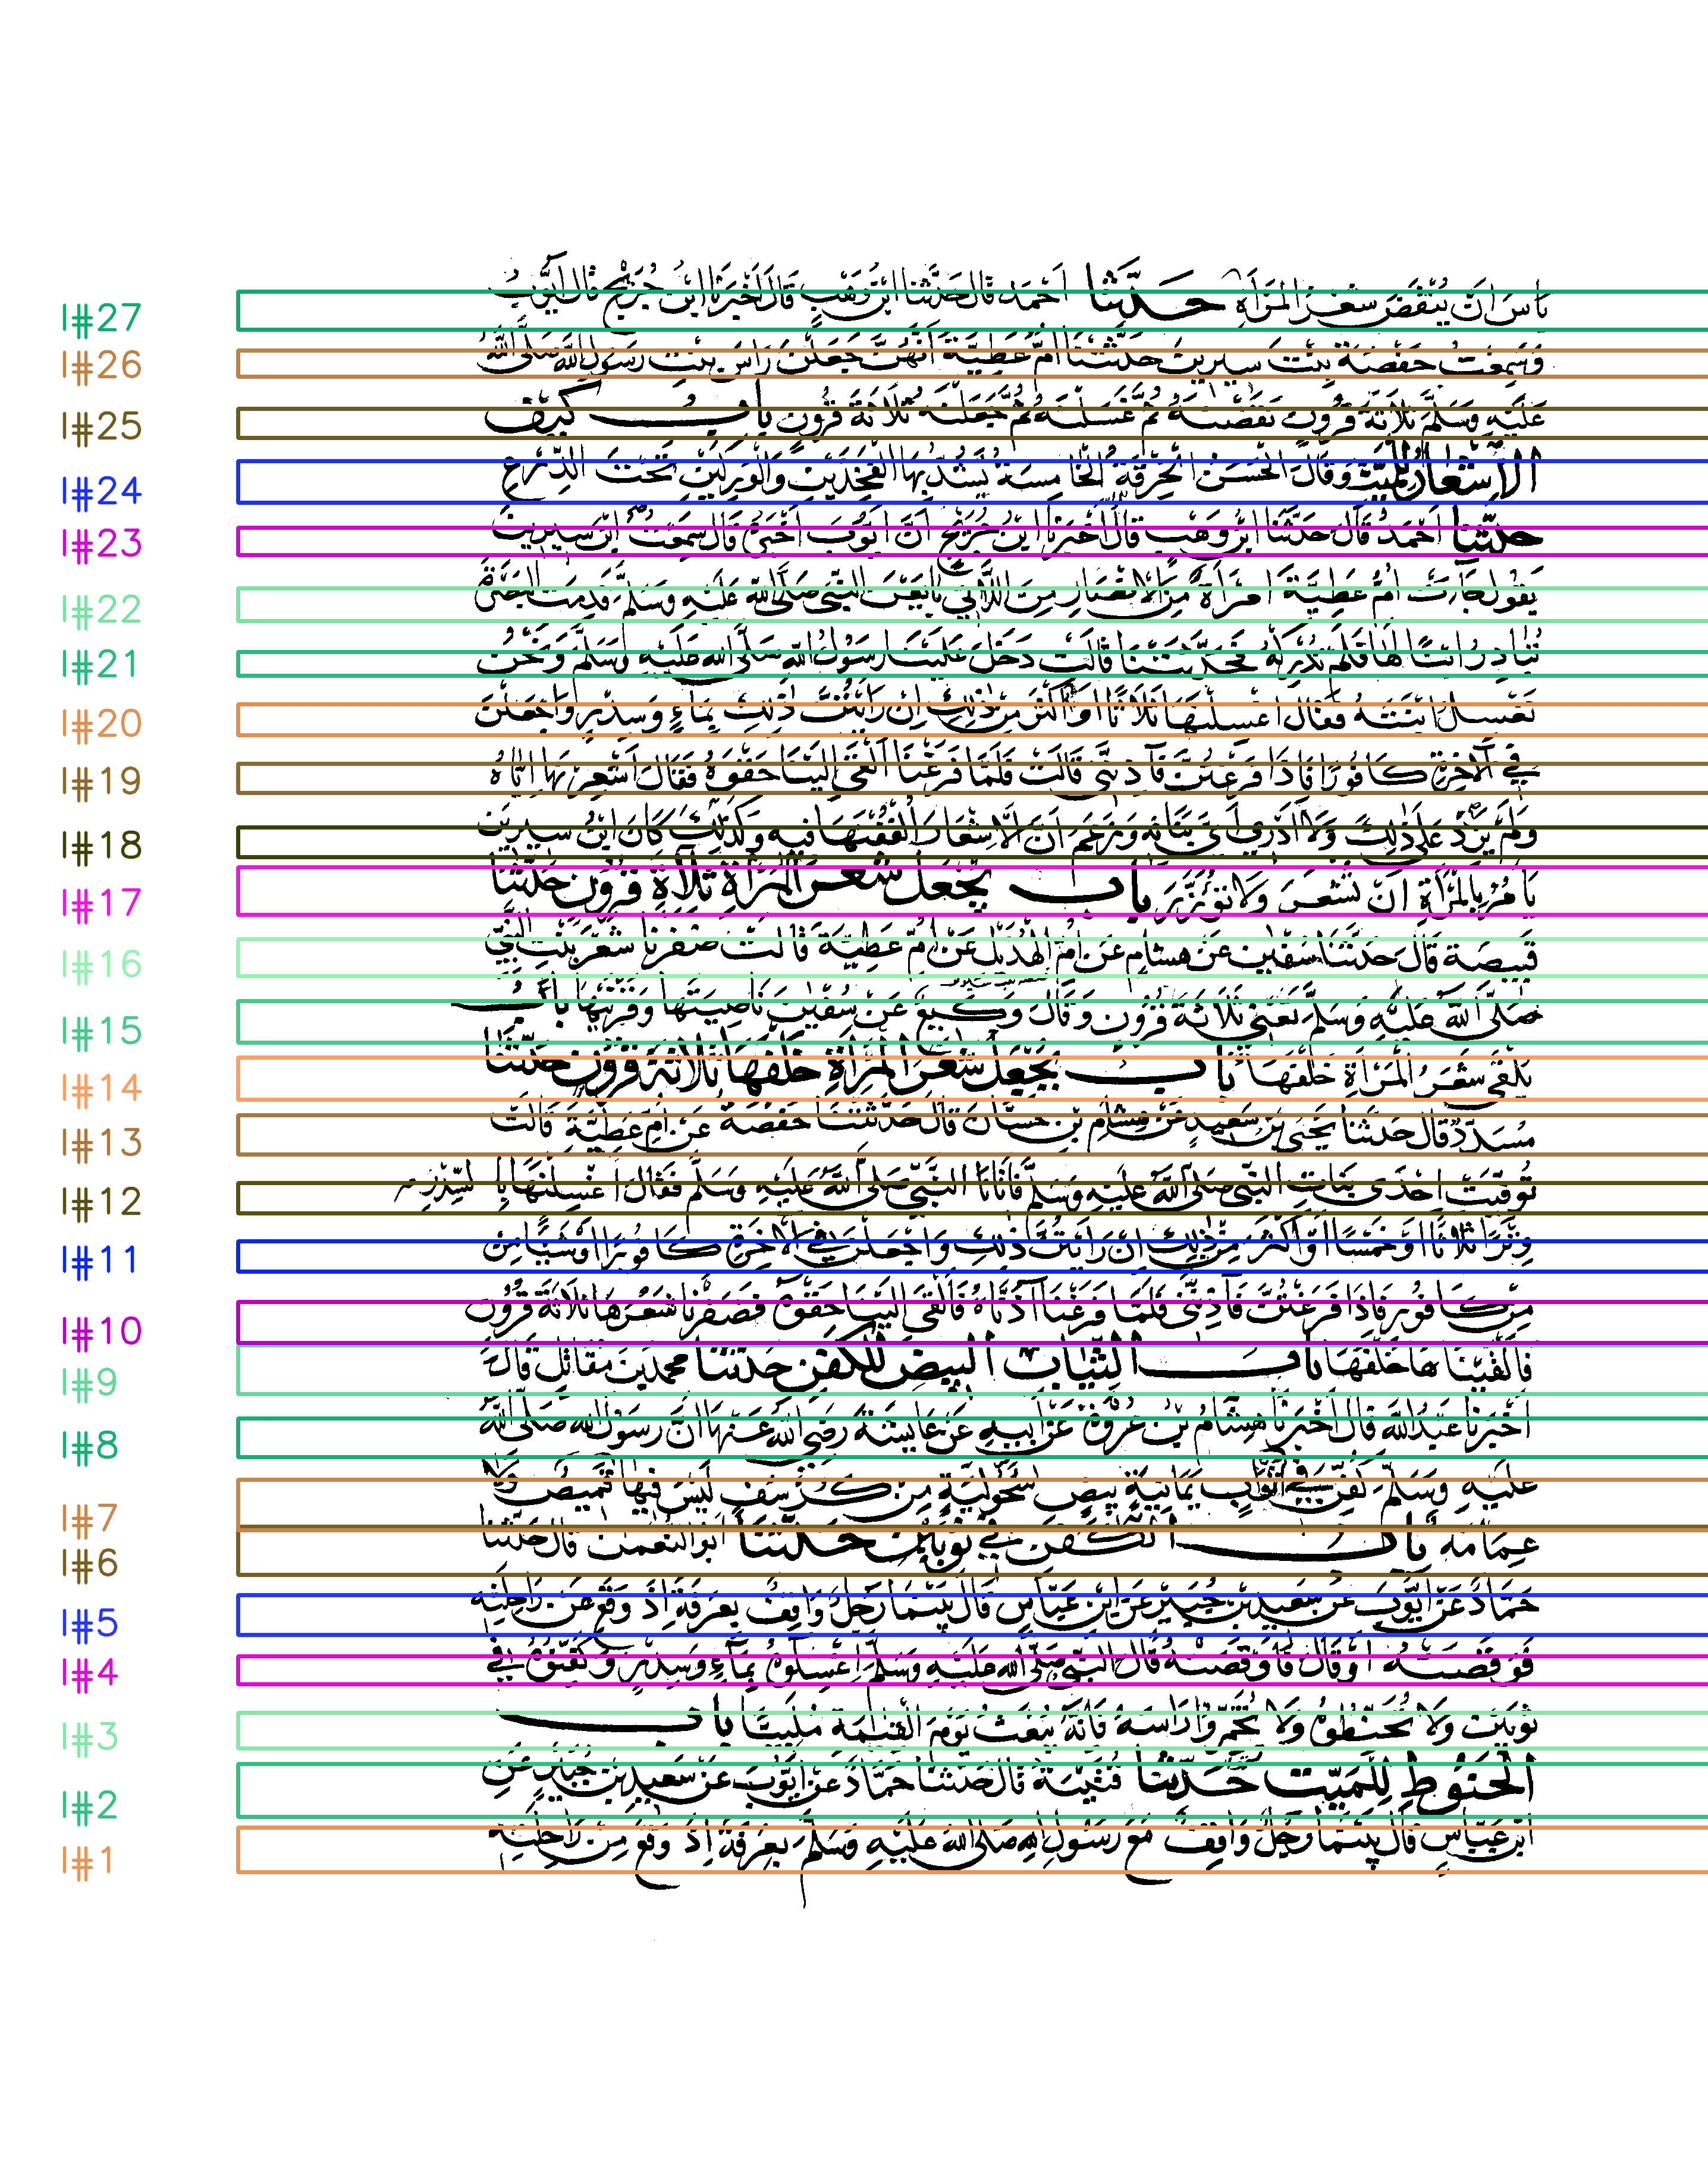 بأس ان ينقض شعر المرأة حدثنا احمد قال حدثنا ابن وهب قال اخبرنا ابن جريج قال ايوب
وسمعت حفصة بنت سيرين حدثتنا ام عطية انهن جعلن راس بنت رسول الله صلى الله
عليه وسلم ثلاثة قرون نقضنه ثم غسلنه ثم جعلنه ثلاثة قرون باب كيف
الاشعار للميت وقال الحسن الخرقة الخامسة يشد بها الفخذين والوركين تحت الدرع
حدثنا احمد قال حدثنا ابن وهب قال اخبرنا ابن جريج ان ايوب اخبره قال سمعت ابن سيرين
يقول جاءت ام عطية امرأة من الانصار من اللاتي بايعن النبي صلى الله عليه وسلم قدمت البصرة
تبادر ابنا لها فلم تدركه فحدثتنا قالت دخل علينا رسول الله صلى الله عليه وسلم ونحن
نغسل ابنته فقال اغسلنها ثلاثا او اكثر من ذلك ان رايتن ذلك بماء وسدر واجعلن
في الآخرة كافورا فاذا فرغتن فآذنني قالت فلما فرغنا القى الينا حقوه فقال اشعرنها اياه
ولم يزد على ذلك ولا ادري اي بناته وزعم ان الاشعار الففنها فيه وكذلك كان ابن سيرين
يامر بالمرأة ان تشعر ولا تؤزر باب يجعل شعر المرأة ثلاثة قرون حدثنا
قبيصة قال حدثنا سفين عن هشام عن ام الهذيل عن ام عطية قالت ضفرنا شعر بنت النبي
صلى الله عليه وسلم تعني ثلاثة قرون وقال وكيع عن سفين ناصيتها وقرنيها باب
يلقى شعر المرأة خلفها باب يجعل شعر المرأة خلفها ثلاثة قرون حدثنا
مسدد قال حدثنا يحيى بن سعيد عن هشام بن حسان قال حدثتنا حفصة عن ام عطية قالت
توفيت احدى بنات النبي صلى الله عليه وسلم فاتانا النبي صلى الله عليه وسلم فقال اغسلنها بالسدر
وترا ثلاثا او خمسا او اكثر من ذلك ان رايتن ذلك واجعلن في الآخرة كافورا او شيئا من
من كافور فاذا فرغتن فآذنني فلما فرغنا آذناه فالقى الينا حقوه فضفرنا شعرها ثلاثة قرون
فالقيناها خلفها باب الثياب البيض للكفن حدثنا محمد بن مقاتل قال
اخبرنا عبد الله قال اخبرنا هشام بن عروة عن ابيه عن عايشة رضي الله عنها ان رسول الله صلى الله
عليه وسلم كفن في اثواب يمانية بيض سحولية من كرسف ليس فيها قميص ولا
عمامة باب الكفن في ثوبين حدثنا ابو النعمان قال حدثنا
حماد عن ايوب عن سعيد بن جبير عن ابن عباس قال بينما رجل واقف بعرفة اذ وقع عن راحلته
فوقصته او قال فاوقصته قال النبي صلى الله عليه وسلم اغسلوه بماء وسدر وكفنوه في
ثوبين ولا تحنطوه ولا تخمروا راسه فانه يبعث يوم القيامة ملبيا باب
الحنوط للميت حدثنا قتيبة قال حدثنا حماد عن ايوب عن سعيد بن جبير عن
ابن عباس قال بينما رجل واقف مع رسول الله صلى الله عليه وسلم بعرفة اذ وقع من راحلته